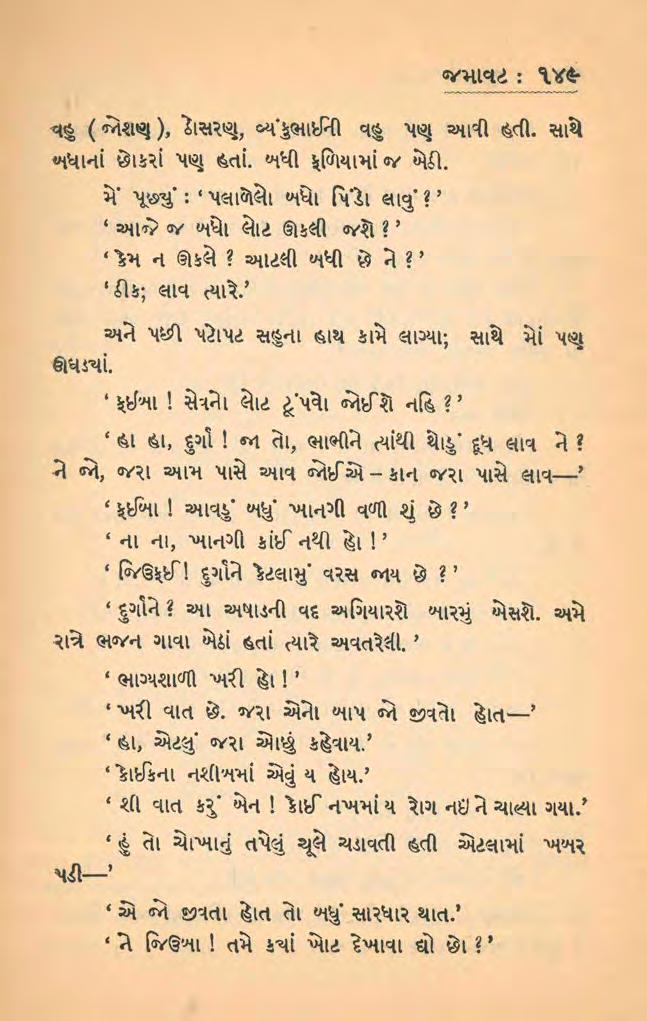 જમાવટ : ૧૪૯
વહુ ( જોશણ ), ઠોસરણ, વ્યંકુભાઈની વહુ પણ આવી હતી. સાથે
બધાનાં છોકરાં પણ હતાં. બધી ફળિયામાં જ બેઠી.
મેં પૂછ્યું : ‘ પલાળેલો બધો પિંડો લાવું ? ’
‘ આજે જ બધો લોટ ઊકલી જશે ? ’
‘ કેમ ન ઊકલે ? આટલી બધી છે ને ? ’
‘ ઠીક; લાવ ત્યારે.’
અને પછી પટોપટ સહુના હાથ કામે લાગ્યા; સાથે મોં પણ
ઊઘડ્યાં.
‘ ફઈબા ! સેવનો લોટ ટૂંપવો જોઈશે નહિ ? ’
‘ હા હા, દુર્ગા ! જા તો, ભાભીને ત્યાંથી થોડું દૂધ લાવ ને ?
ને જો, જરા આમ પાસે આવ જોઈએ – કાન જરા પાસે લાવ—’
‘ ફઈબા ! આવડું બધું ખાનગી વળી શું છે ? ’
‘ ના ના, ખાનગી કાંઈ નથી હો ! ’
‘ જિઉફઈ ! દુર્ગાને કેટલામું વરસ જાય છે ? ’
‘ દુર્ગાને ? આ અષાડની વદ અગિયારશે બારમું બેસશે. અમે
રાત્રે ભજન ગાવા બેઠાં હતાં ત્યારે અવતરેલી. ’
‘ ભાગ્યશાળી ખરી હો ! ’
‘ ખરી વાત છે. જરા એનો બાપ જો જીવતો હોત—’
‘ હા, એટલું જરા ઓછું કહેવાય.’
‘ કોઈકના નશીબમાં એવું ય હોય.’
‘ શી વાત કરું બેન ! કોઈ નખમાં ય રોગ નઈ ને ચાલ્યા ગયા.’
‘ હું તો ચોખાનું તપેલું ચૂલે ચડાવતી હતી એટલામાં ખબર
પડી—’
‘ એ જો જીવતા હોત તો બધું સારધાર થાત.’
‘ ને જિઉબા ! તમે ક્યાં ખોટ દેખાવા દ્યો છો ? ’